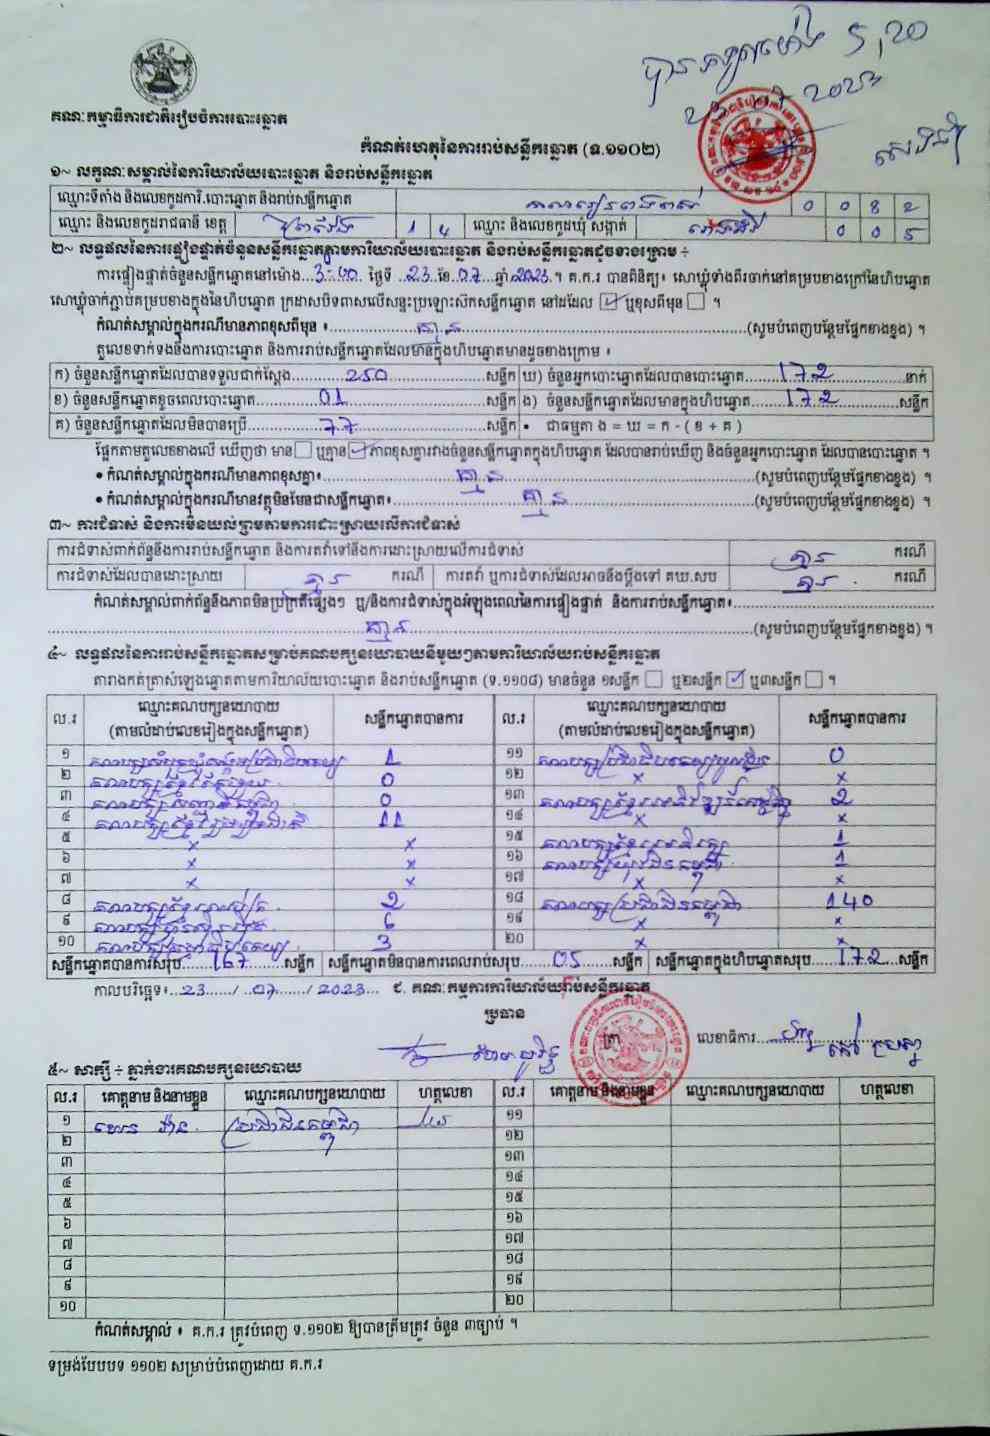 បានទទួលម៉ោង 5,20
គណៈកម្មាធិការជាតិរៀបចំការបោះឆ្នោត
កំណត់ហេតុនៃការរាប់សន្លឹកឆ្នោត (ទ.១១០២)
១~ លក្ខណៈសម្គាល់នៃការិយាល័យបោះឆ្នោត និងរាប់សន្លឹកឆ្នោត
ឈ្មោះទីតាំង និងលេខកូដការិ.បោះឆ្នោត និងរាប់សន្លឹកឆ្នោត 0 0 8 2
ឈ្មោះ និងលេខកូដរាជធានី ខេត្ត ព្រៃវែង 1 4 ឈ្មោះ និងលេខកូដឃុំ សង្កាត់ 0 0 5
២~ លទ្ធផលនៃការផ្ទៀងផ្ទាត់ចំនួនសន្លឹកឆ្នោតតាមការិយាល័យបោះឆ្នោត និងរាប់សន្លឹកឆ្នោតដូចខាងក្រោម ÷
ការផ្ទៀងផ្ទាត់ចំនួនសន្លឹកឆ្នោតនៅម៉ោង...3-40 ថ្ងៃទី ..23 ខែ.07 ឆ្នាំ 2023.។ គ.ក.រ បានពិនិត្យ៖ សោឃ្លុំទាំងពីរចាក់នៅគម្របខាងក្រៅនៃហិបឆ្នោត
សោឃ្លុំចាក់ភ្ជាប់គម្របខាងក្នុងនៃហិបឆ្នោត ក្រដាសបិទពាសលើសន្ទះប្រឡោះស៊កសន្លឹកឆ្នោត នៅដដែល ☑ ឬខុសពីមុន ☐ ។
កំណត់សម្គាល់ក្នុងករណីមានភាពខុសពីមុន ៖ គ្មាន (សូមបំពេញបន្ថែមផ្នែកខាងខ្នង) ។
តួលេខទាក់ទងនឹងការបោះឆ្នោត និងការរាប់សន្លឹកឆ្នោតដែលមានក្នុងហិបឆ្នោតមានដូចខាងក្រោម ៖
ក) ចំនួនសន្លឹកឆ្នោតដែលបានទទួលជាក់ស្តែង 250 សន្លឹក ឃ) ចំនួនអ្នកបោះឆ្នោតដែលបានបោះឆ្នោត 172 នាក់
ខ) ចំនួនសន្លឹកឆ្នោតខូចពេលបោះឆ្នោត 01 សន្លឹក ង) ចំនួនសន្លឹកឆ្នោតដែលមានក្នុងហិបឆ្នោត 172 សន្លឹក
គ) ចំនួនសន្លឹកឆ្នោតដែលមិនបានប្រើ 77 សន្លឹក • ជាធម្មតា ង = ឃ = ក - ( ខ + គ )
ផ្អែកតាមតួលេខខាងលើ ឃើញថា មាន ☐ ឬគ្មាន ☑ ភាពខុសគ្នារវាងចំនួនសន្លឹកឆ្នោតក្នុងហិបឆ្នោត ដែលបានរាប់ឃើញ និងចំនួនអ្នកបោះឆ្នោត ដែលបានបោះឆ្នោត ។
• កំណត់សម្គាល់ក្នុងករណីមានភាពខុសគ្នា៖ គ្មាន (សូមបំពេញបន្ថែមផ្នែកខាងខ្នង) ។
• កំណត់សម្គាល់ក្នុងករណីមានវត្ថុមិនមែនជាសន្លឹកឆ្នោត៖ គ្មាន (សូមបំពេញបន្ថែមផ្នែកខាងខ្នង) ។
៣~ ការជំទាស់ និងការមិនយល់ព្រមតាមការដោះស្រាយលើការជំទាស់
ការជំទាស់ពាក់ព័ន្ធនឹងការរាប់សន្លឹកឆ្នោត និងការតវ៉ាទៅនឹងការដោះស្រាយលើការជំទាស់ គ្មាន ករណី
ការជំទាស់ដែលបានដោះស្រាយ គ្មាន ករណី ការតវ៉ា ឬការជំទាស់ដែលអាចនឹងប្តឹងទៅ គឃ.សប គ្មាន ករណី
កំណត់សម្គាល់ពាក់ព័ន្ធនឹងភាពមិនប្រក្រតីផ្សេងៗ ឬ/និងការជំទាស់ក្នុងអំឡុងពេលនៃការផ្ទៀងផ្ទាត់ និងការរាប់សន្លឹកឆ្នោត៖
គ្មាន (សូមបំពេញបន្ថែមផ្នែកខាងខ្នង) ។
៤~ លទ្ធផលនៃការរាប់សន្លឹកឆ្នោតសម្រាប់គណបក្សនយោបាយនីមួយៗតាមការិយាល័យរាប់សន្លឹកឆ្នោត
តារាងកត់ត្រាសំឡេងឆ្នោតតាមការិយាល័យបោះឆ្នោត និងរាប់សន្លឹកឆ្នោត (ទ.១១០៨) មានចំនួន ១សន្លឹក ☐ ឬ២សន្លឹក ☑ ឬ៣សន្លឹក ☐ ។
ល.រ ឈ្មោះគណបក្សនយោបាយ (តាមលំដាប់លេខរៀងក្នុងសន្លឹកឆ្នោត) សន្លឹកឆ្នោតបានការ ល.រ ឈ្មោះគណបក្សនយោបាយ (តាមលំដាប់លេខរៀងក្នុងសន្លឹកឆ្នោត) សន្លឹកឆ្នោតបានការ
១ 1 ១១ 0
២ 0 ១២ x x
៣ 0 ១៣ 2
៤ 11 ១៤ x x
៥ x x ១៥ 1
៦ x x ១៦ 1
៧ x x ១៧ x x
៨ 2 ១៨ គណបក្សប្រជាជនកម្ពុជា 140
៩ 6 ១៩ x x
១០ 3 ២០ x x
សន្លឹកឆ្នោតបានការសរុប 167 សន្លឹក សន្លឹកឆ្នោតមិនបានការពេលរាប់សរុប 05 សន្លឹក សន្លឹកឆ្នោតក្នុងហិបឆ្នោតសរុប 172 សន្លឹក
កាលបរិច្ឆេទ៖ 23 / 07 / 2023 ជ. គណៈកម្មការការិយាល័យរាប់សន្លឹកឆ្នោត
ប្រធាន
ត្រា លេខាធិការ
៥~ សាក្សី ÷ ភ្នាក់ងារគណបក្សនយោបាយ
ល.រ គោត្តនាម និងនាមខ្លួន ឈ្មោះគណបក្សនយោបាយ ហត្ថលេខា ល.រ គោត្តនាម និងនាមខ្លួន ឈ្មោះគណបក្សនយោបាយ ហត្ថលេខា
១ ប្រជាជនកម្ពុជា ១១
២ ១២
៣ ១៣
៤ ១៤
៥ ១៥
៦ ១៦
៧ ១៧
៨ ១៨
៩ ១៩
១០ ២០
កំណត់សម្គាល់ ៖ គ.ក.រ ត្រូវបំពេញ ទ.១១០២ ឱ្យបានត្រឹមត្រូវ ចំនួន ៣ច្បាប់ ។
ទម្រង់បែបបទ ១១០២ សម្រាប់បំពេញដោយ គ.ក.រ